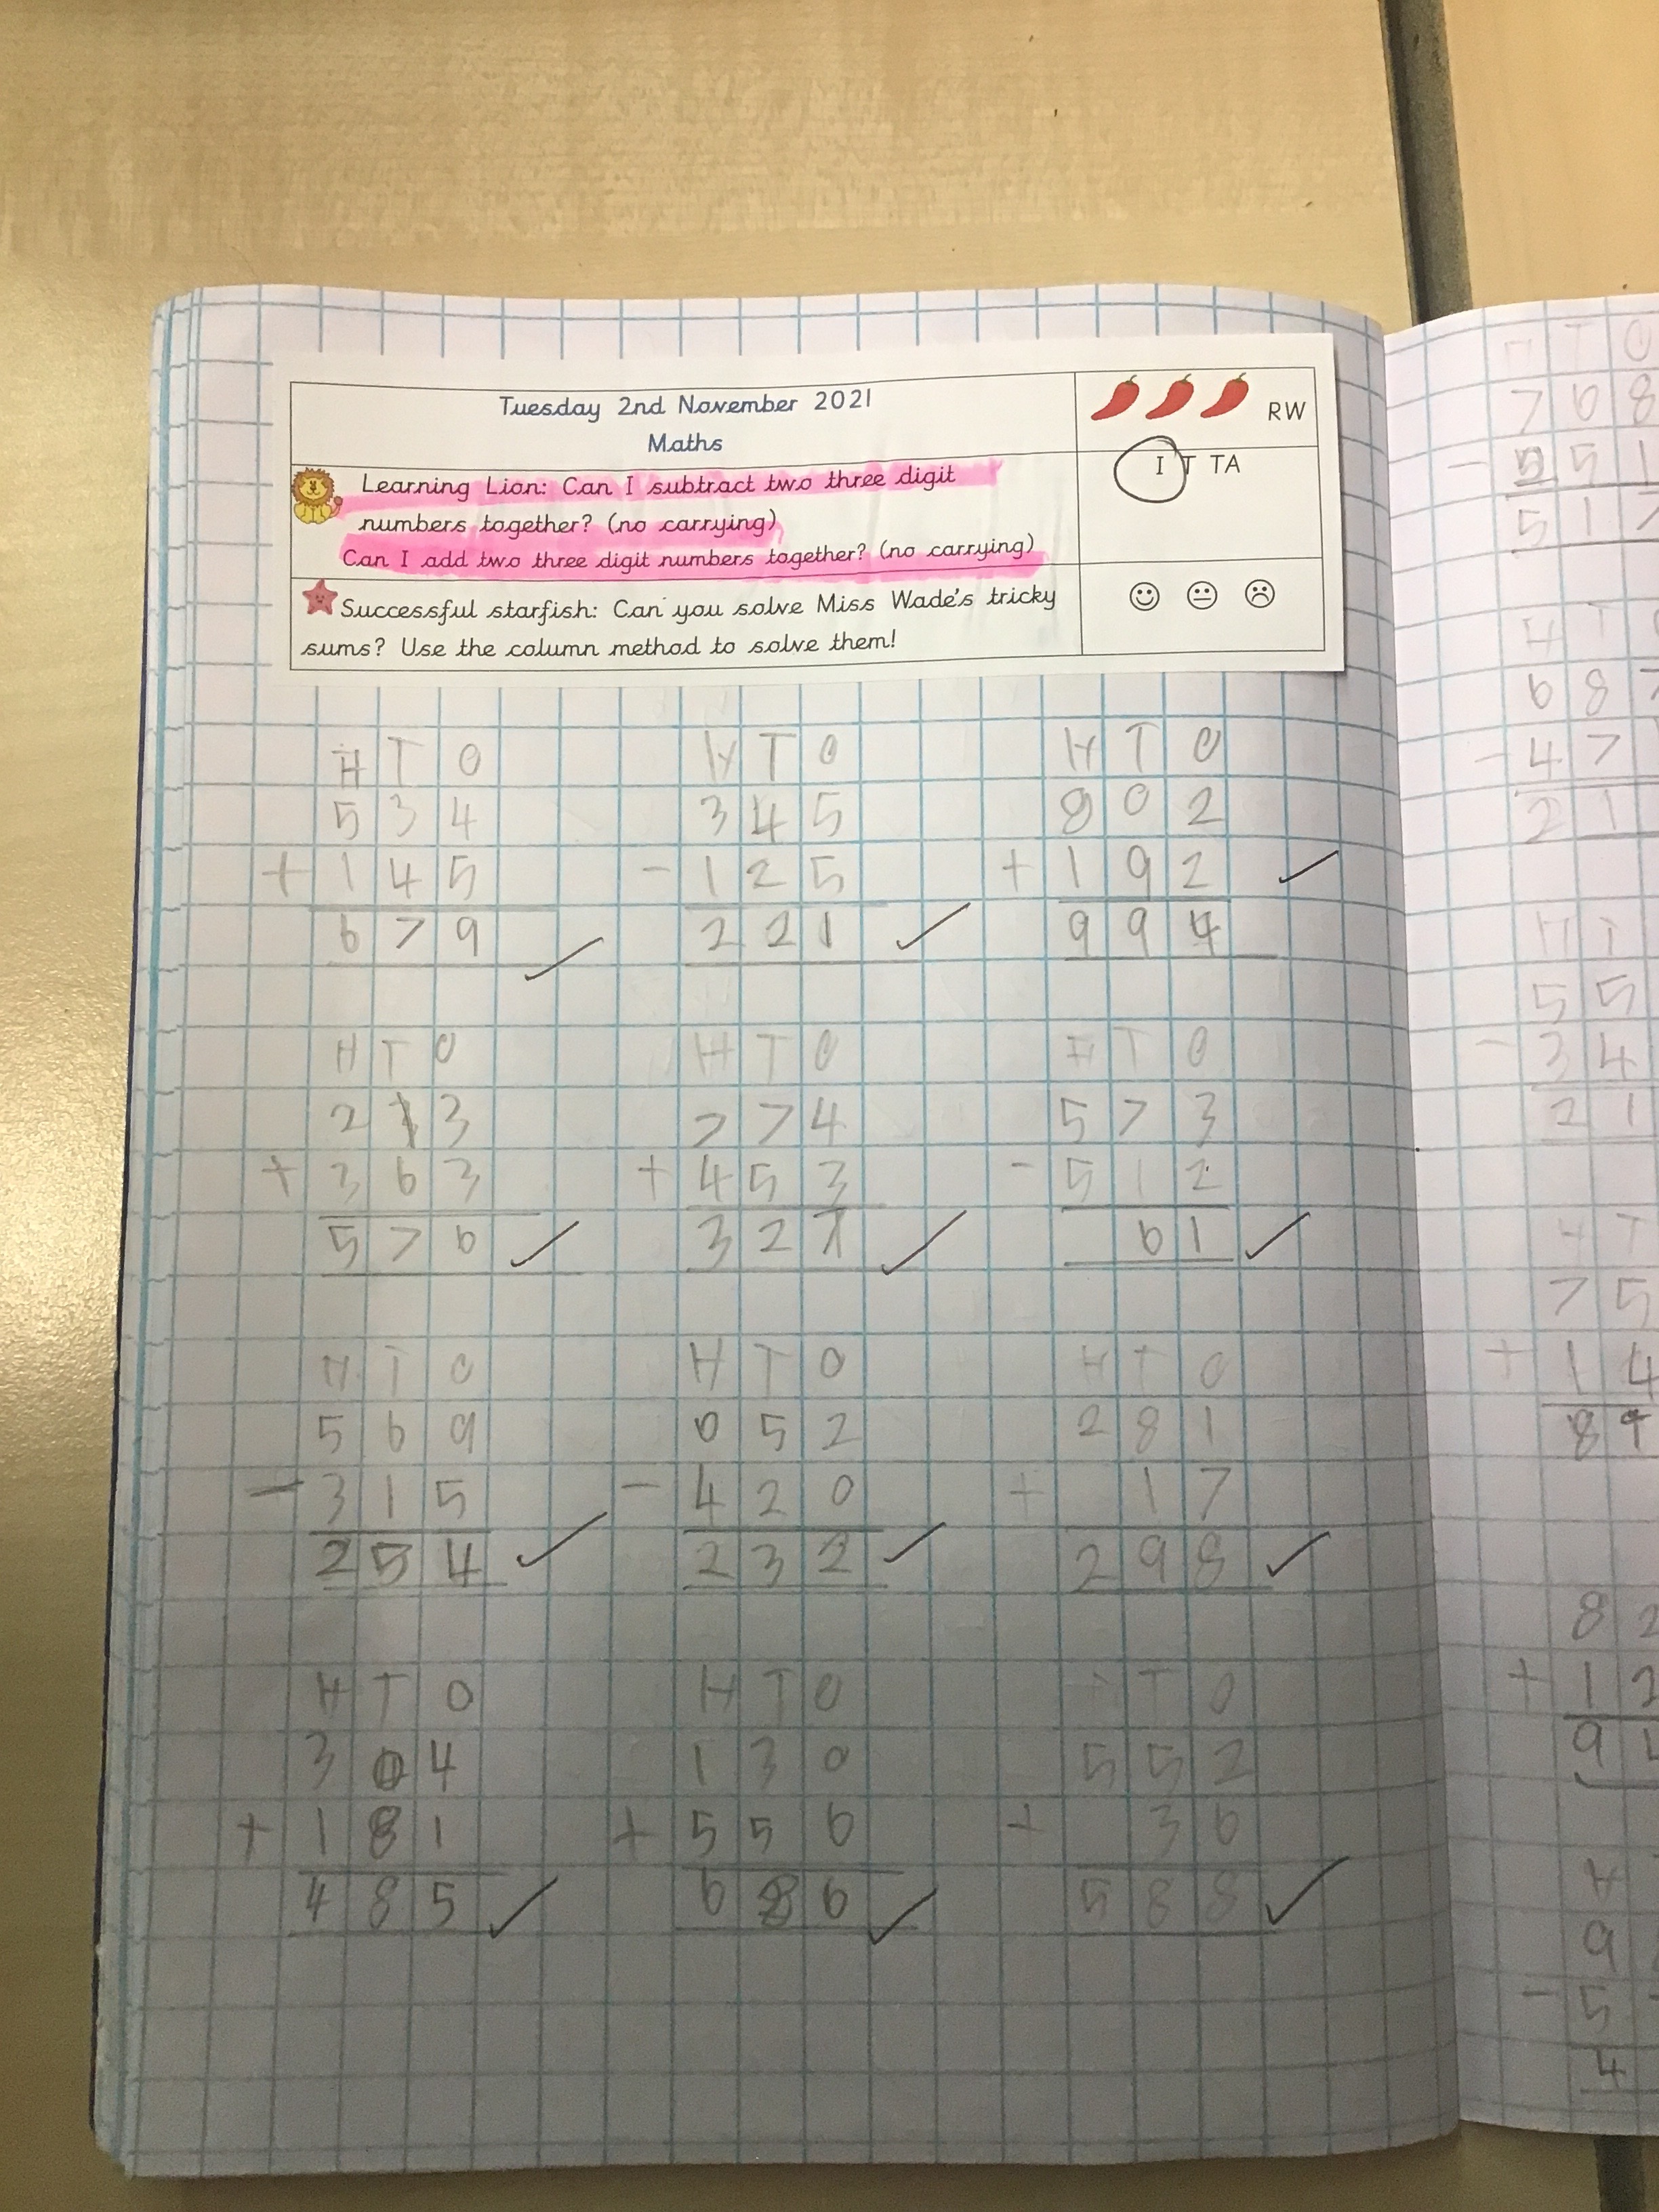 Tuesday 2nd November 2021
Maths
RW
I T TA
Learning Lion: Can I subtract two three digit
numbers together? (no carrying)
Can I add two three digit numbers together? (no carrying)
Successful starfish: Can you solve Miss Wade's tricky
sums? Use the column method to solve them!
H T O H T O H T O
5 3 4 3 4 5 8 0 2
+ 1 4 5 - 1 2 5 + 1 9 2
6 7 9 2 2 1 9 9 4
H T O H T O H T O
2 1 3 7 7 4 5 7 3
+ 3 6 3 + 4 5 3 - 5 1 2
5 7 6 3 2 7 6 1
H T O H T O H T O
5 6 9 6 5 2 2 8 1
- 3 1 5 - 4 2 0 + 1 7
2 5 4 2 3 2 2 9 8
H T O H T O H T O
3 0 4 1 3 0 5 5 2
+ 1 8 1 + 5 5 6 + 3 6
4 8 5 6 8 6 5 8 8
H T O
7 6 8
- 5 5 1
5 1 7
H T
6 8 7
- 4 7
2 1
H T
5 5
- 3 4
2 1
H T
7 5
+ 1 4
8 9
8 2
+ 1 2
9
H
9
- 5
4